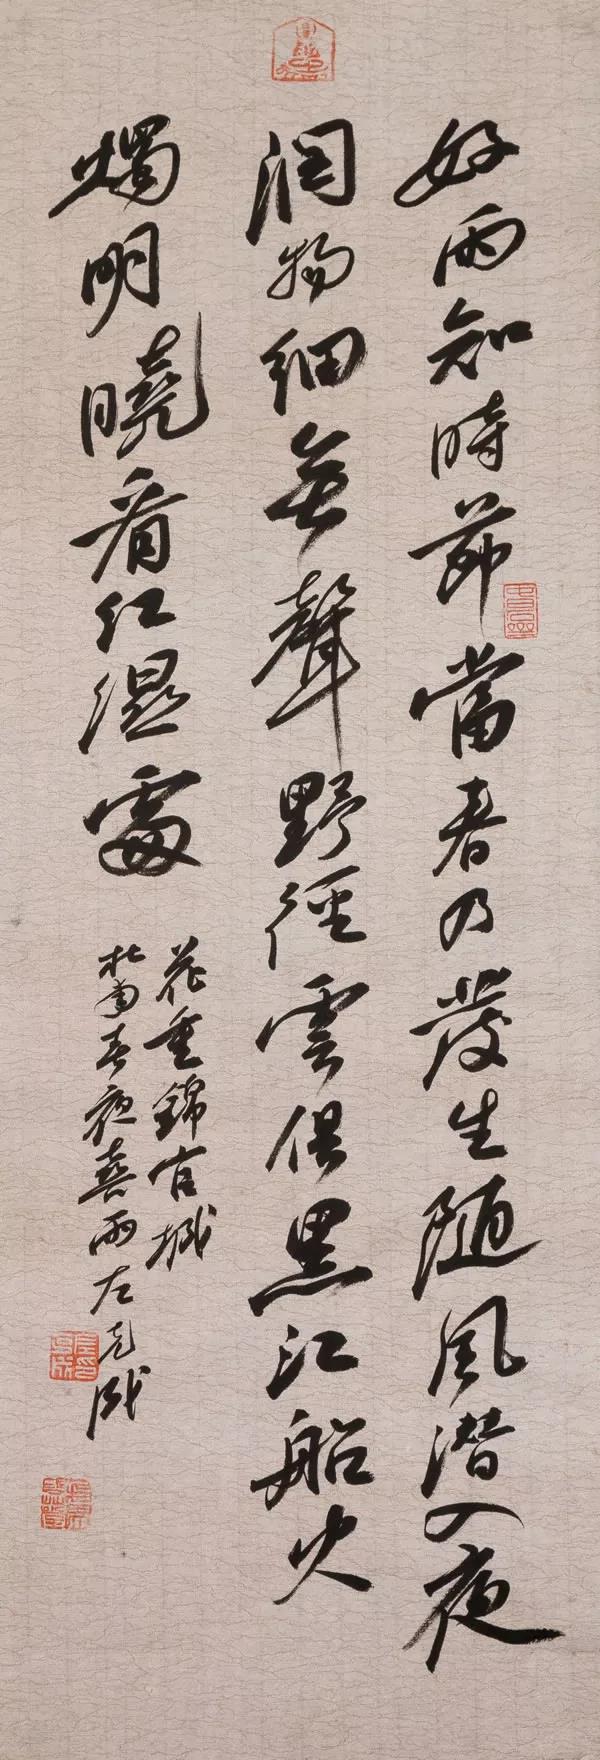 好雨知時節當春乃發生随風潜入夜
潤物細無聲野徑雲俱黑江船火
燭明曉看紅湿處
花重錦官城
杜甫春夜喜雨左克成